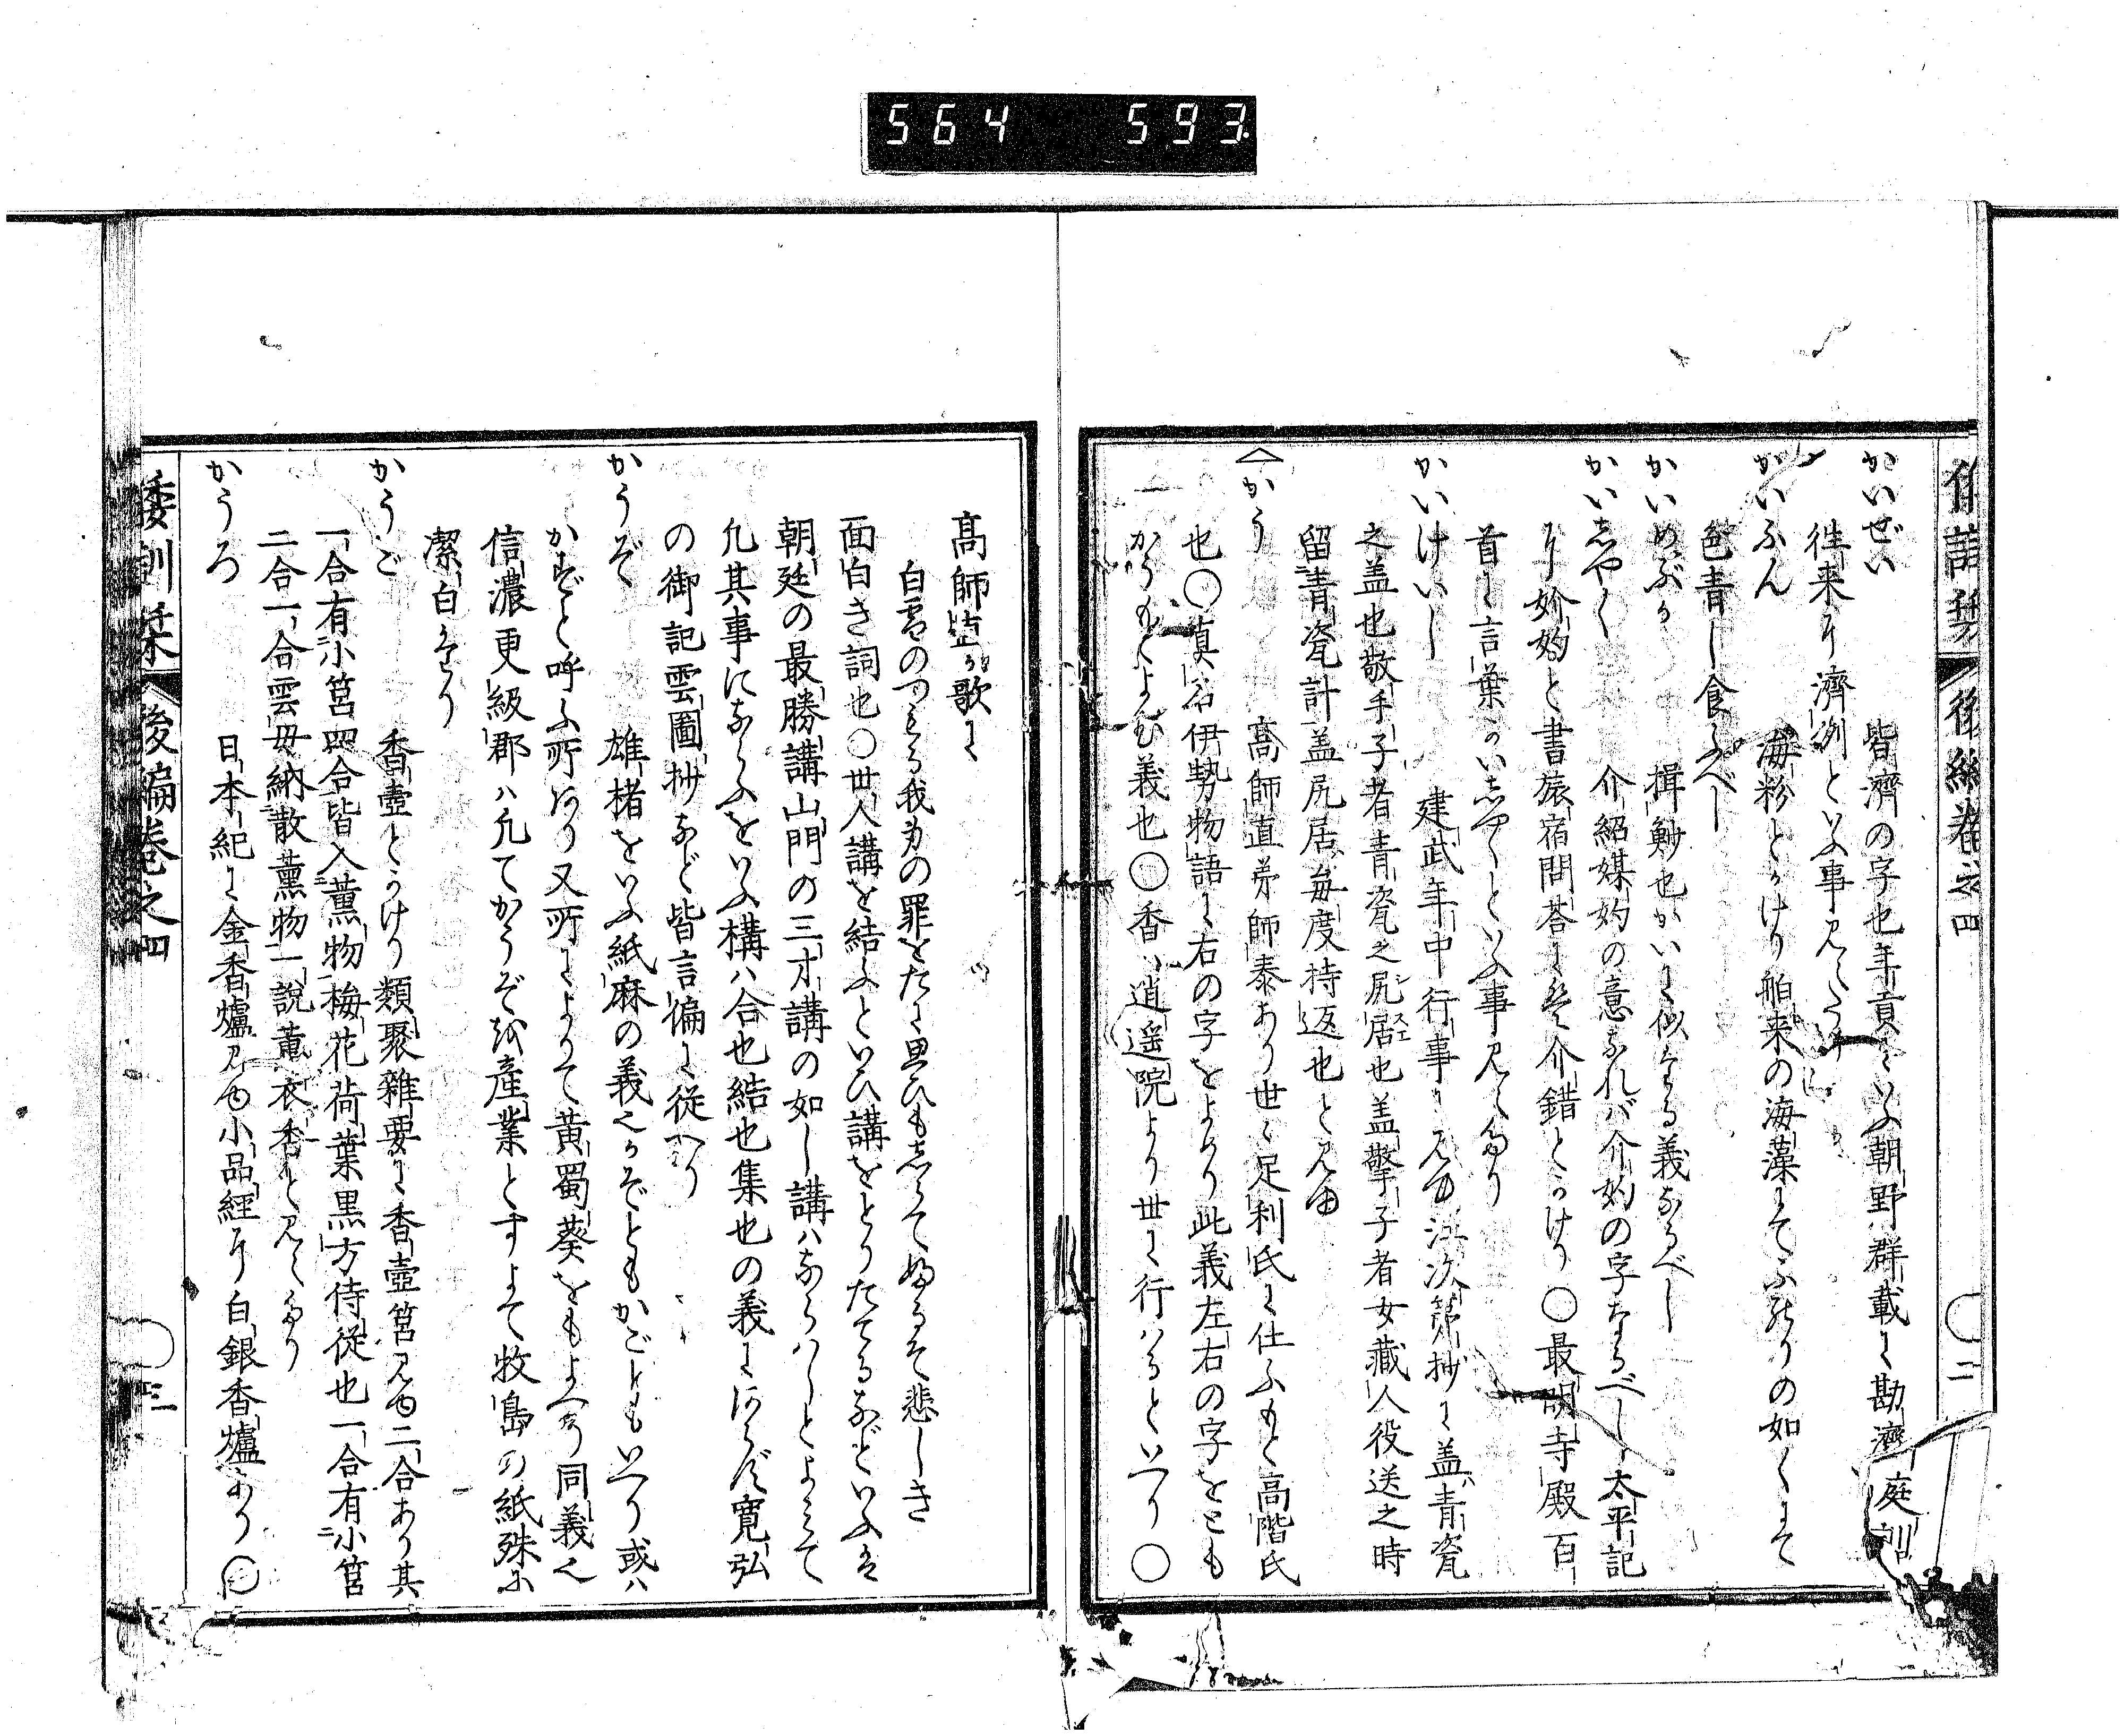 564 593
後編巻之四
二
かいぜい 皆濟の字也年貢にいふ朝野群載に勘濟庭訓
往来に濟例といふ事見えたり
かいふん 海粉とかけり舶来の海藻にてふのりの如くにて
色青し食ふべし
かいめぶか 揖鮸也かいに似たる義なるべし
かいしやく 介紹媒妁の意なれバ介妁の字なるべし太平記
に妎妁と書旅宿問答に介錯とかけり○最明寺殿百
首に言葉かいしやくといふ事見えたり
かいけいし 建武年中行事に見ゆ江次第抄に盖青瓷
之盖也敬手子者青瓷之尻居也盖擎子者女蔵人役送之時
留青瓷計盖尻居毎度持返也と見ゆ
かう 高師直弟師泰あり世々足利氏に仕ふもと高階氏
也○真名伊勢物語に右の字をよめり此義左右の字をとも
かうもとよむ義也○香ハ逍遥院より世に行ハるといへり○
高師直が歌に
白雪のつもる我身の罪とたに思ひもしらてぬるそ悲しき
面白き詞也○世人講を結ふといひ講をとりたてるなどいふハ
朝廷の最勝講山門の三十講の如し講ハならハしとよみて
凡其事にならふをいふ構ハ合也結也集也の義にあらず寛弘
の御記雲圖抄など皆言偏に従へり
かうぞ 雄楮をいふ紙麻の義也かぞともかごともいへり或ハ
かずと呼ふ所あり又所によりて黄蜀葵をもよべり同義也
信濃更級郡ハ凡てかうぞを産業とすよて牧島の紙殊に
潔白なり
かうご 香壺とかけり類聚雜要に香壺筥見ゆ二合あり其
一合有小筥四合皆入薫物梅花荷葉黒方侍従也一合有小筥
二合一合雲母納散薫物一説薫衣香と見えたり
かうろ 日本紀に金香爐見ゆ小品經に白銀香爐あり○
倭訓栞 後編巻之四
三